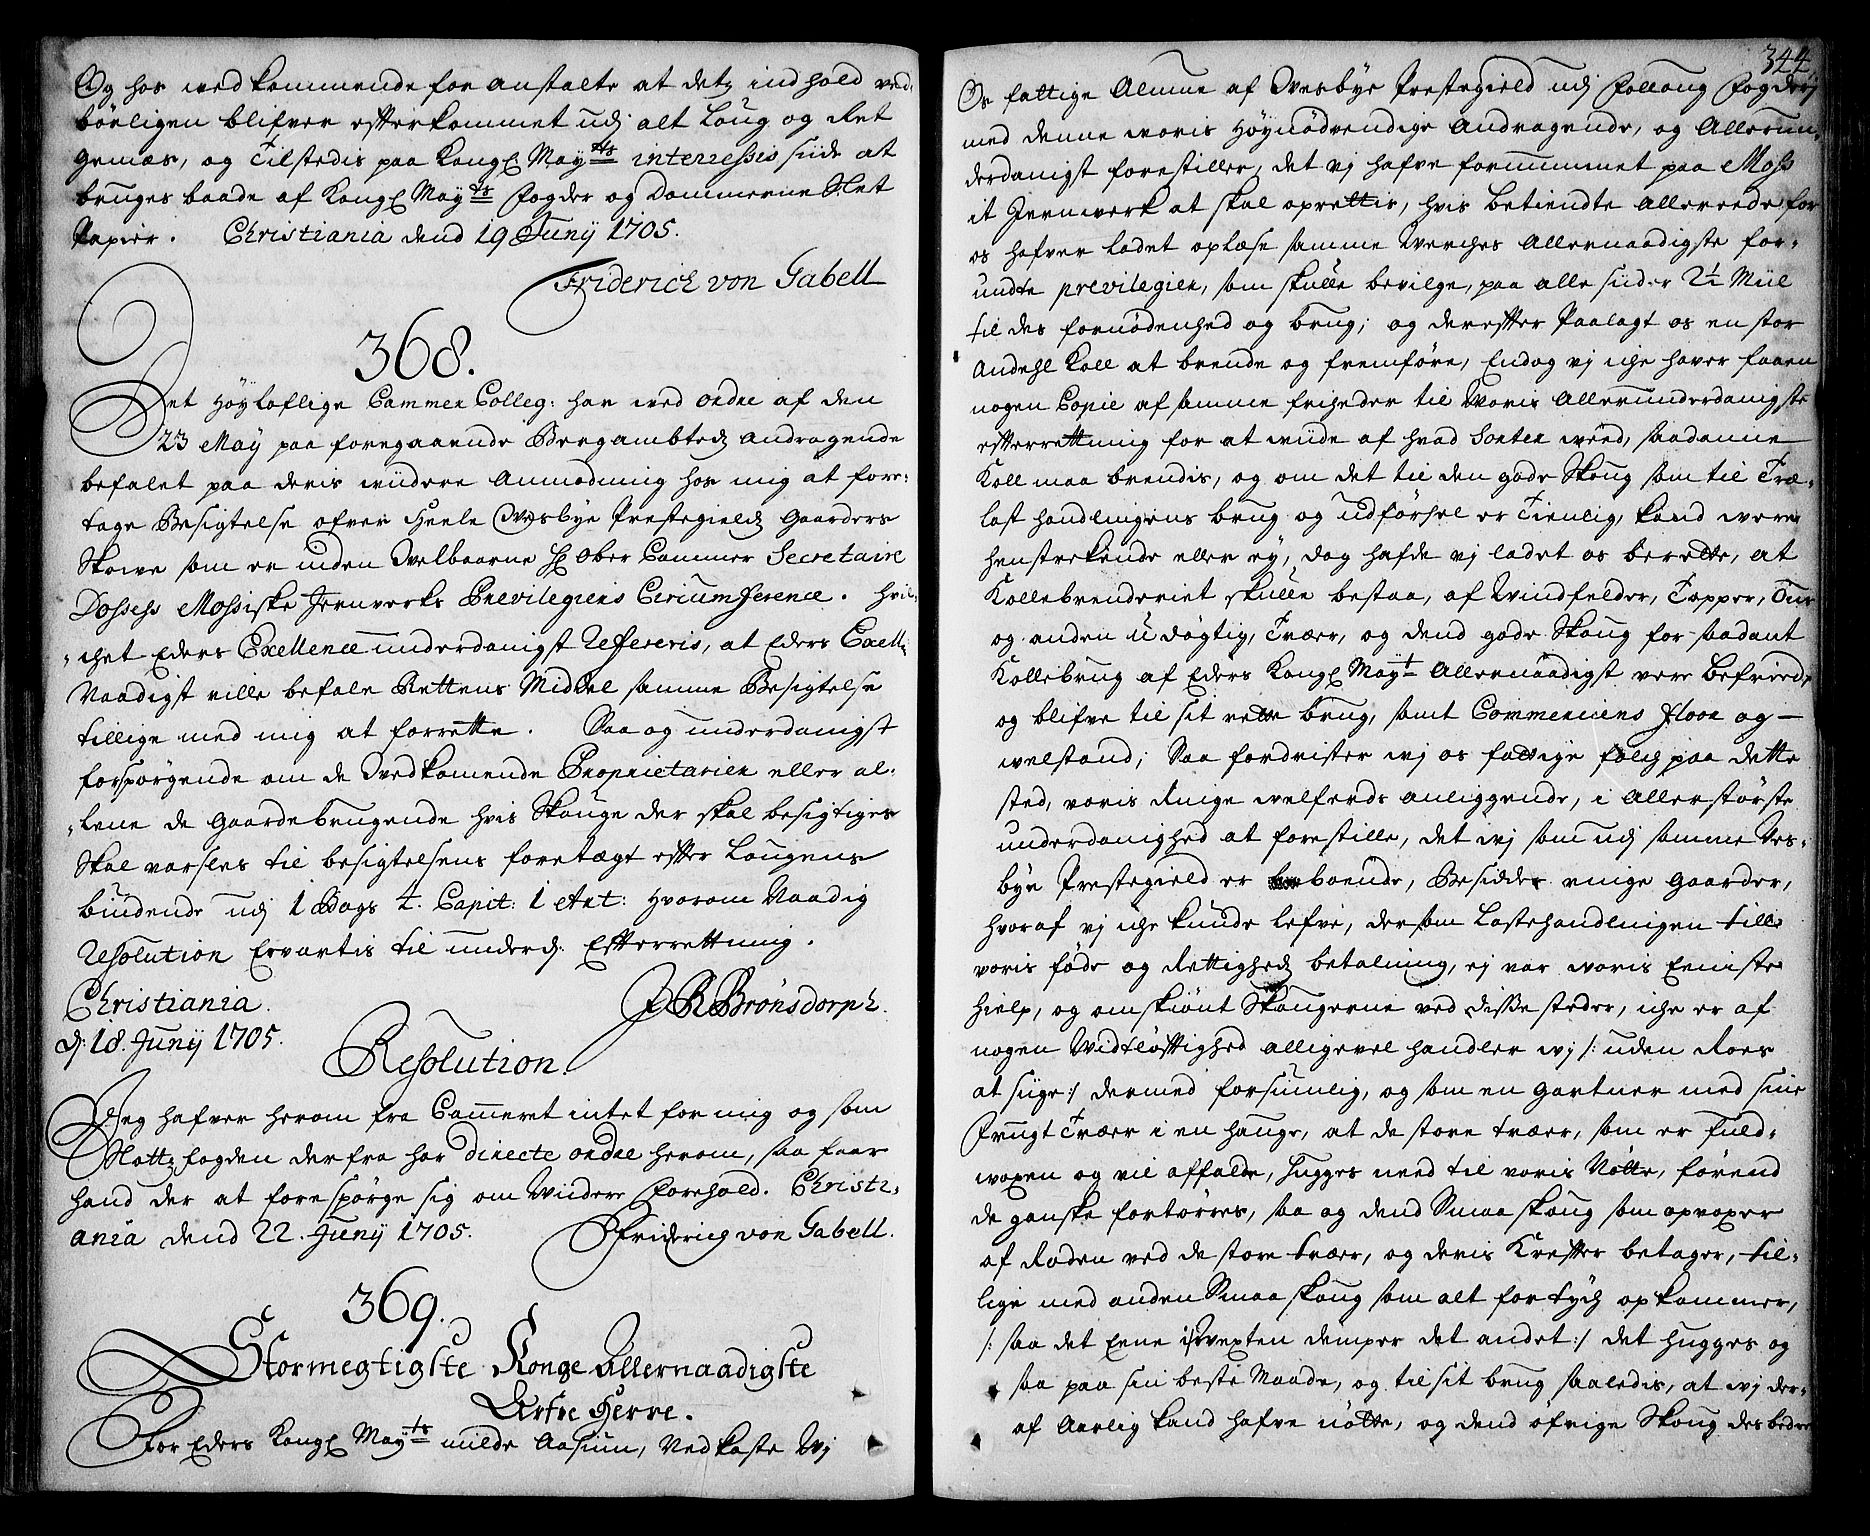 Og hos vedkommende for anstalte at detz indhold ved
börligen blifver efterkommet udj alt Loug og Ret
gemæs, og Tilstedis paa Kongl May:ts interressis siide at
bruges baade af Kongl May:ts Fogder og Dommerne Slet
Papier. Christiania dend 19 Junÿ 1705.
Friderich von Gabell
368.
Det Höyloflige Cammer Colleg: har ved ordre af den
23 May paa foregaaende Bergambtedz Andragende
befalet paa deris viidere Anmodning hos mig at fore-
tage Besigtelse ofver Heele Wesbye Prestegieldz Gaarders
Skowe som er inden Velbaarne H: Ober Cammer Secretaire
Dossess Mossiske Jernverks Previlegiens Circumference. Hvil-
chet Eders Exellence underdanigst Refereris, at Eders Exell:
Naadigst ville befale Rettens Middel samme Besigtelse
tillige med mig at forrette. Saa og underdanigst
forspörgende om de Vedkomende Proprietarier eller al-
lene de Gaardebrugende hvis Skouge der skal besigtiges
Skal varsles til besigtelsens foretægt efter Lougens
bindende udj 1 Bogs 4. Capit: 1 Art: Hvorom Naadig
Resolution Ervartis til underd: Efterrettning.
Christiania.
J R Brönsdorph.
d: 18. Junÿ 1705.
Resolution.
Jeg hafver herom fra Cammeret intet for mig og som
Slottzfogden derfra har directe ordre herom, saa faar
hand der at forespörge sig om Viidere Forhold. Christi-
ania dend 22. Junÿ 1705.
Friderig von Gabell.
369.
Stormegtigste Konge Allernaadigste
Arfve Herre.
For Eders Kongl May:ts milde Aasiun, Nedkaste Wj
344.
Os fattige Almue af Wesbye Prestegield udj Folloug Fogderj
med denne woris Höynödvendige Andragende, og Allerun-
derdanigst forestiller, det vj hafve fornummet paa Moss
it Jernwerk at skal oprettis, hvis betiendte allereede for
os hafver ladet oplæse samme Werches Allernaadigste for-
undte previlegier, som skulle bevilge, paa alle siider 2½ Miil
til des fornödenhed og brug; og derefter Paalagt os en stor
Andehl Koll at brende og fremföre, Endog vj iche haver faaen
nogen Copie af samme friheder til Woris Allerunderdanigste
efterrettning for at wiide af hvad Sorter wed, saadanne
Koll maa brendis, og om det til den gode Skoug som til Træ-
last handlingens brug og udförsel er Tienlig, kand were
henstrekende eller ey, dog hafde vj ladet os berette, at
Kollebrenderiet skulle bestaa, af Windfelder, Topper, Quis
og anden udögtig, Træer, og dend gode Skoug for saadant
Kollebrug af Eders Kongl May:t Allernaadigst vere befriid,
og blifve til sit rette brug, samt Commerciens Floor og
welstand; Saa fordrister wj os fattige folch paa dette
sted, voris Ringe welferds anliggende, i Allerstörste
underdanighed at forestille, det wj som udj samme Ves-
bye Prestegield er boende, Besidder ringe Gaarder,
hvoraf vj iche kunde lefve, dersom Lastehandlingen till
voris föde og Rettighedz betalning, ej var woris Eeniste
hielp, og omskiönt Skougerne ved disse steder, iche er af
nogen Widtlöftighed alligevel handler wj /: uden Roes
at siige :/ dermed forsunlig, og som en Gartner med sine
Frugt Træer i en hauge, at de store træer, som er fuld-
woxen og vil affalde, Hugges need til voris Nötte, förend
de ganske fortörres, saa og dend Smaa skoug som opvoxer
af Roden ved de store træer, og deris Krefter betager, til-
lige med anden Smaa skoug som alt for tych opkommer,
/: saa det Eene i Wexten demper det andet :/ det Hugges og
saa paa sin beste Maade, og til sit brug saaledis, at wj der-
af Aarlig kand hafve nötte, og dend öfvrige Skoug desbedre